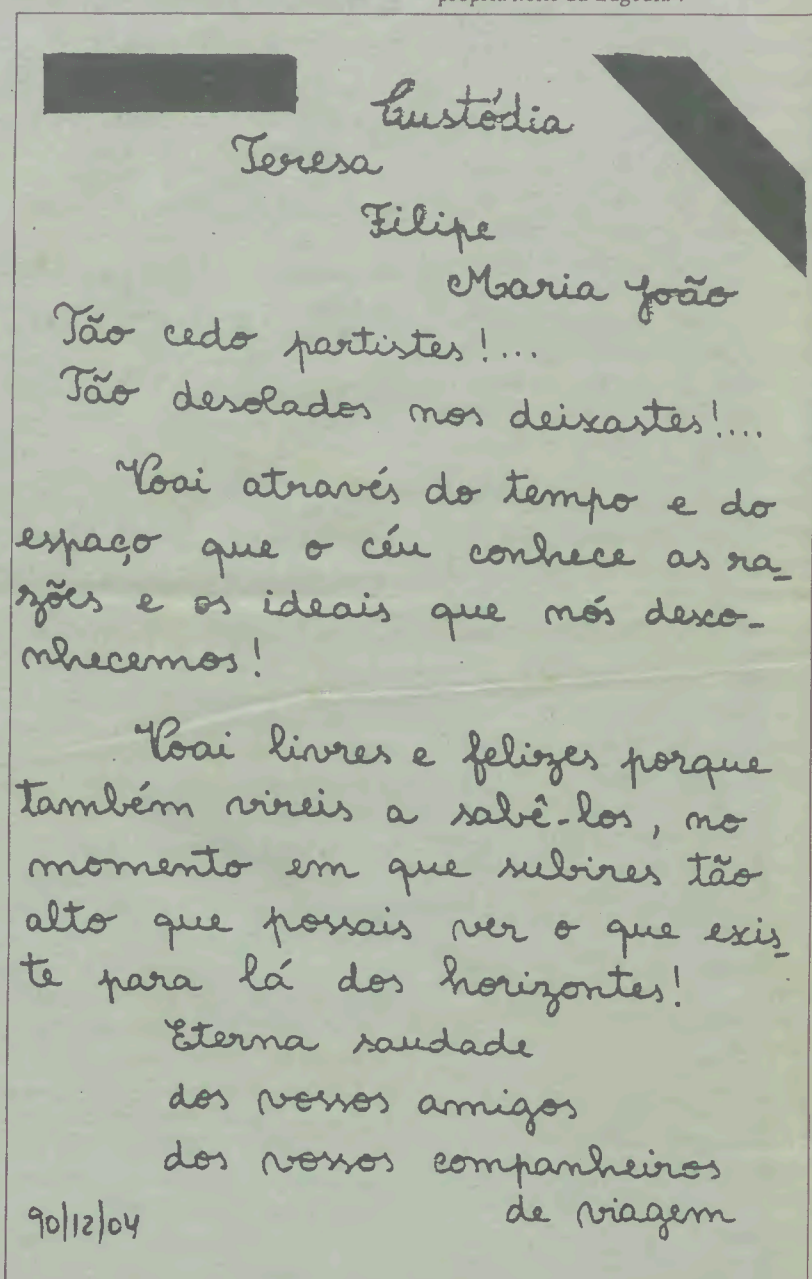 Custódia
Teresa
Filipe
Maria João
Tão cedo partistes!...
Tão desolados nos deixastes!...
Voai através do tempo e do
espaço que o céu conhece as ra-
zões e os ideais que nós desco-
nhecemos!
Voai livres e felizes porque
também vireis a sabê-los, no
momento em que subires tão
alto que possais ver o que exis-
te para lá dos horizontes!
Eterna saudade
dos vossos amigos
dos vossos companheiros
de viagem
90/12/04